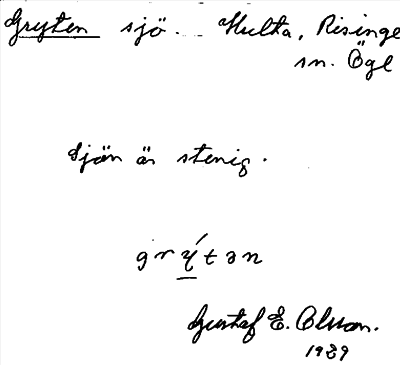 Gryten sjö. Hulta, Risinge
sn. Ögl
Sjön är stenig.
grýtən
Gustaf E. Olsson.
1929